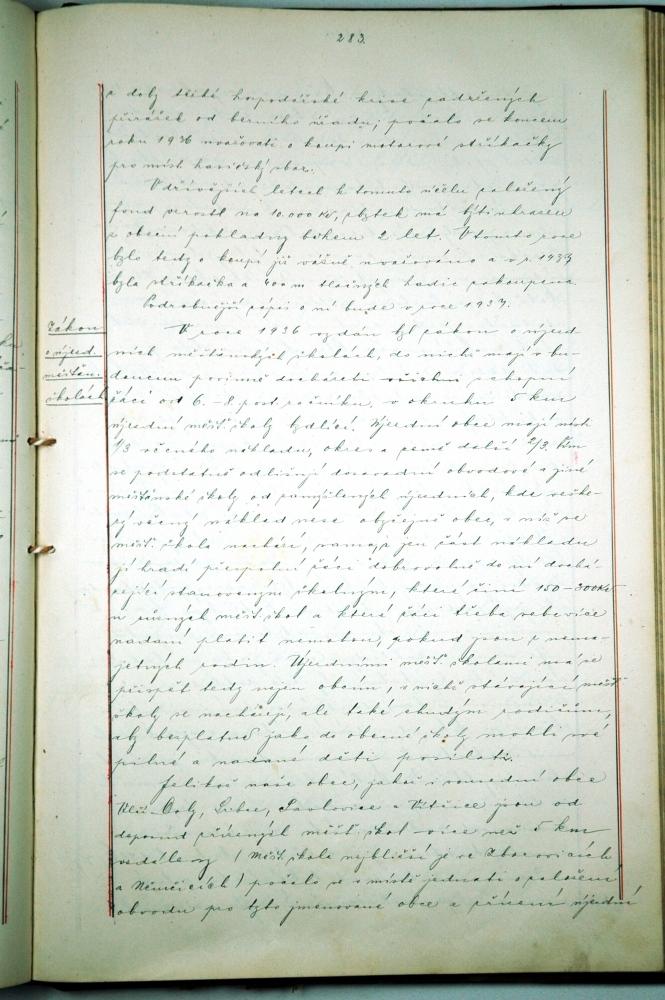 283.
z doby těžké hospodářské krise zadržených
přirážek od berního úřadu, počalo se koncem
roku 1936 uvažovati o koupi motorové stříkačky
pro místní hasičský sbor.
V dřívějších letech k tomuto účelu založený
fond vzrostl na 10.000 Kč, zbytek má býti uhrazen
z obecní pokladny během 2 let. V tomto roce
bylo tedy o koupi již vážně uvažováno a v r. 1937
byla stříkačka a 400 m tlačných hadic zakoupena.
Podrobnější zápis o ní bude v roce 1937.
Zákon
o újezd.
měšťan.
školách
V roce 1936 vydán byl zákon o újezd
ních měšťanských školách, do nichž mají v bu-
doucnu povinně docházeti všichni schopní
žáci od 6.-8 post. ročníku, v okruhu 5 km
újezdní měšť. školy bydlící. Újezdní obce mají nésti
1/3 věcného nákladu, okres a země další 2/3. Tím
se podstatně odlišují dosavadní obvodové a jiné
měšťanské školy od zamýšlených újezdních, kde veške-
rý věcný náklad nese obyčejně obec, v níž se
měšť. škola nachází, sama, a jen část nákladu
jí hradí přespolní žáci dobrovolně do ní dochá-
zející stanoveným školným, které činí 150-300 Kč
u různých měšť. škol a které žáci třeba sebevíce
nadaní platit nemohou, pokud jsou z nema-
jetných rodin. Újezdními měšť. školami má se
přispět tedy nejen obcím, v nichž stávající měšť.
školy se nacházejí, ale také chudým rodičům,
aby bezplatně jako do obecné školy mohli své
pilné a nadané děti posílati.
Jelikož naše obec, jakož i sousední obce
Vlčí Doly, Lubec, Pavlovice a Vitčice jsou od
doposud zřízených měšť. škol více než 5 km
vzdáleny (měšť. škola nejbližší je ve Zborovicích
a Němčicích) počalo se v místě jednati o založení
obvodu pro tyto jmenované obce a zřízení újezdní